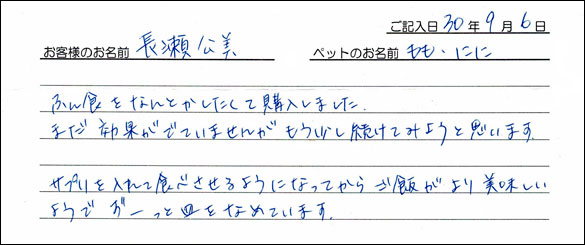 ご記入日 30年 9月 6日
お客様のお名前 長瀬公美 ペットのお名前 もも・にに
ふん食をなんとかしたくて購入しました.
まだ効果がでていませんがもう少し続けてみようと思います.
サプリを入れて食べさせるようになってからご飯がより美味しい
ようでずーっと皿をなめています.